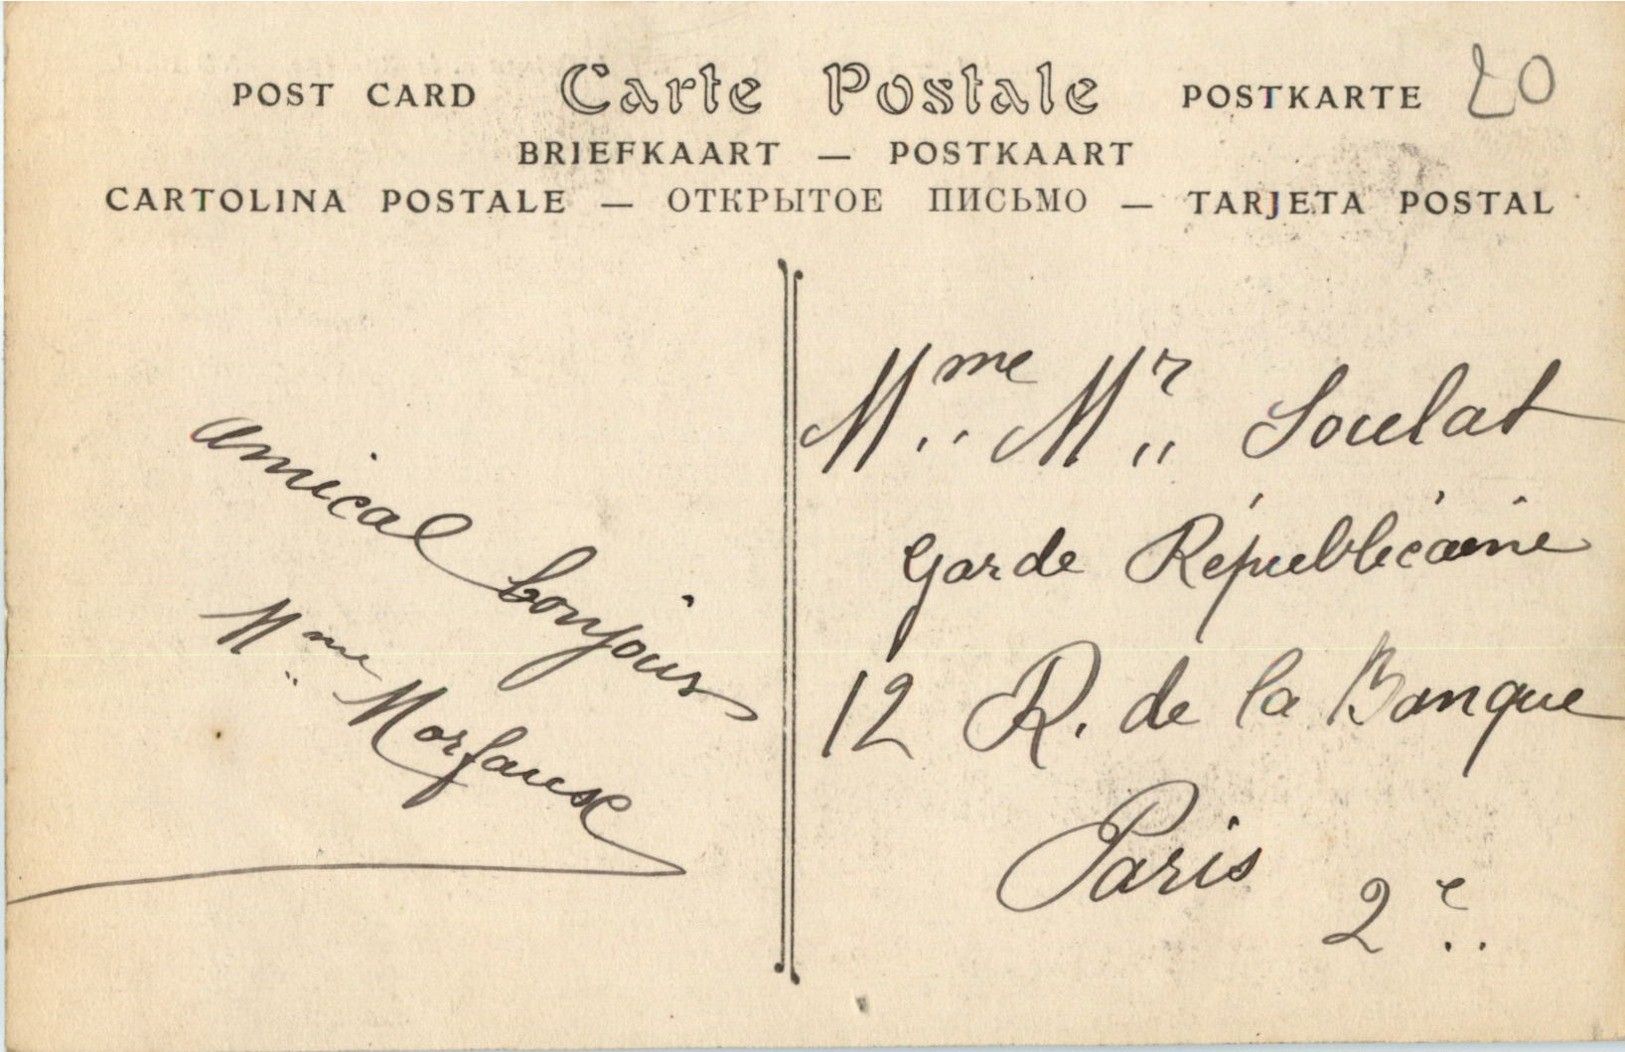 POST CARD Carte Postale POSTKARTE 20
BRIEFKAART — POSTKAART
CARTOLINA POSTALE — ОТКРЫТОЕ ПИСЬМО — TARJETA POSTAL
amical bonjour
Mme Morfause
Mme Mr Soulat
Garde Républicaine
12 R. de la Banque
Paris
2e